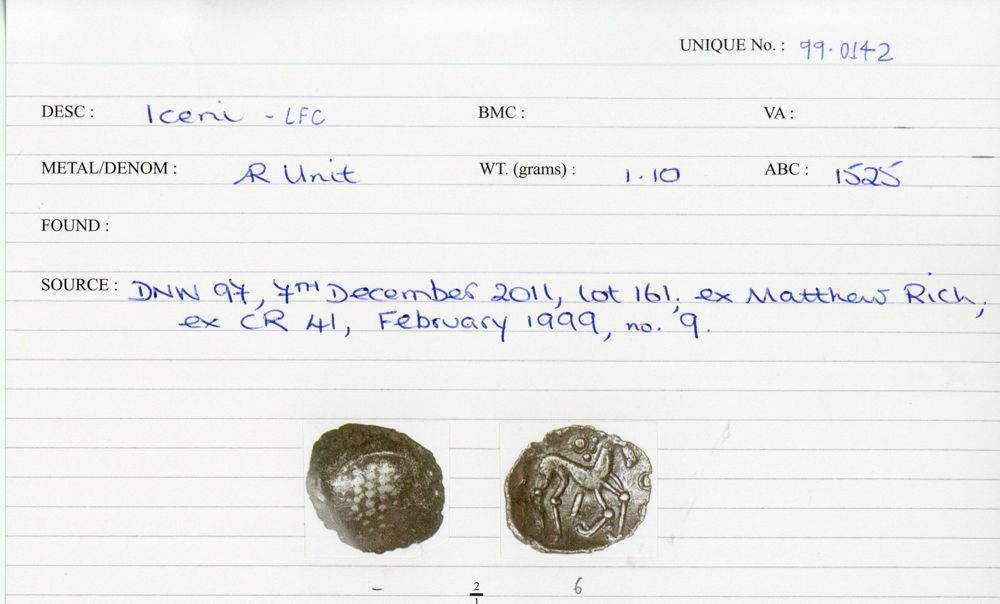 UNIQUE No. : 99.0142
DESC : Iceni - LFC BMC : VA :
METAL/DENOM : AR Unit WT. (grams) : 1.10 ABC : 1525
FOUND :
SOURCE : DNW 97, 7TH December 2011, lot 161, ex Matthew Rich,
ex CR 41, February 1999, no. 9.
- 2/1 6